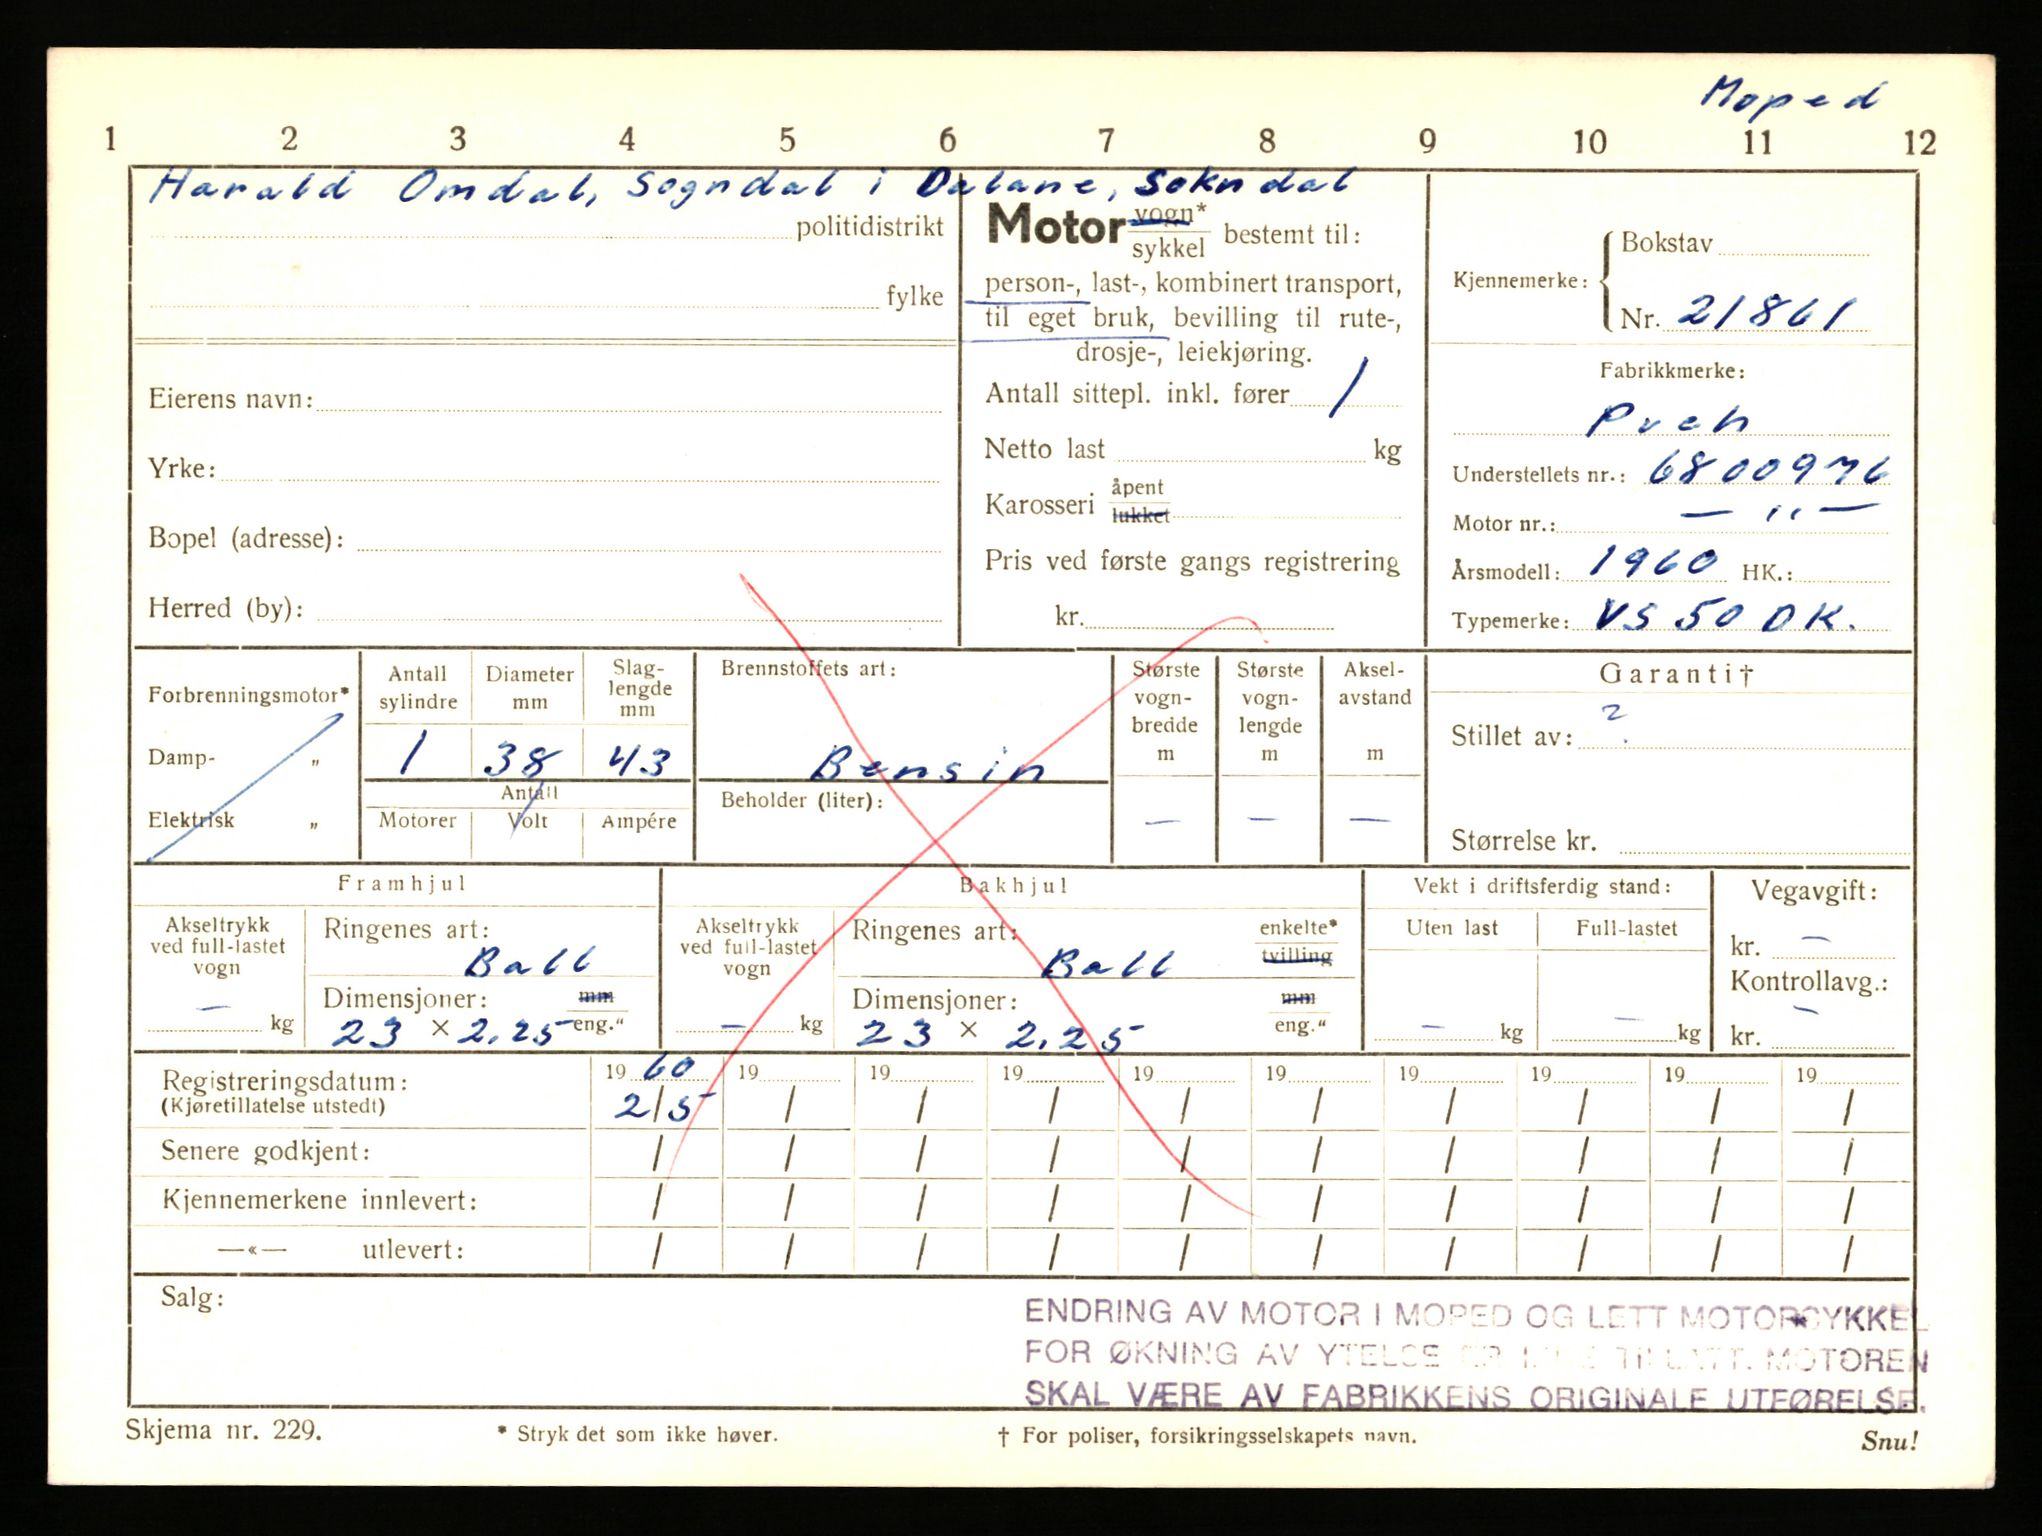 Moped
1 2 3 4 5 6 7 8 9 10 11 12
Harald Omdal, Sogndal i Dalane, Sokndal
politidistrikt
fylke
Eierens navn:
Yrke:
Bopel (adresse):
Herred (by):
Motor vogn* sykkel bestemt til:
person-, last-, kombinert transport,
til eget bruk, bevilling til rute-,
drosje-, leiekjøring.
Antall sittepl. inkl. fører 1
Netto last kg
Karosseri åpent lukket
Pris ved første gangs registrering
kr.
Kjennemerke:
Bokstav
Nr. 21861
Fabrikkmerke:
Puch
Understellets nr.: 6800976
Motor nr.: — „ —
Årsmodell: 1960 HK.:
Typemerke: VS 50 DK.
Forbrenningsmotor*
Damp- „
Elektrisk „
Antall sylindre
Diameter mm
Slag-
lengde
mm
1 38 43
Antall
Motorer Volt Ampére
Brennstoffets art:
Bensin
Beholder (liter):
Største
vogn-
bredde
m
—
Største
vogn-
lengde
m
—
Aksel-
avstand
m
—
Garanti†
Stillet av: ?
Størrelse kr.
Framhjul
Akseltrykk
ved full-lastet
vogn
— kg
Ringenes art:
Ball
Dimensjoner: mm
23 × 2.25 eng."
Bakhjul
Akseltrykk
ved full-lastet
vogn
— kg
Ringenes art: enkelte*
Ball tvilling
Dimensjoner: mm
23 × 2.25 eng."
Vekt i driftsferdig stand:
Uten last Full-lastet
— kg — kg
Vegavgift:
kr. —
Kontrollavg.:
kr. —
Registreringsdatum: 19 60 19 19 19 19 19 19 19 19 19
(Kjøretillatelse utstedt) 2/5 / / / / / / / / /
Senere godkjent: / / / / / / / / / /
Kjennemerkene innlevert: / / / / / / / / / /
—«— utlevert: / / / / / / / / / /
Salg:
ENDRING AV MOTOR I MOPED OG LETT MOTORSYKKEL
FOR ØKNING AV YTELSE ER IKKE TILLATT. MOTOREN
SKAL VÆRE AV FABRIKKENS ORIGINALE UTFØRELSE.
Skjema nr. 229.
* Stryk det som ikke høver.
† For poliser, forsikringsselskapets navn.
Snu!